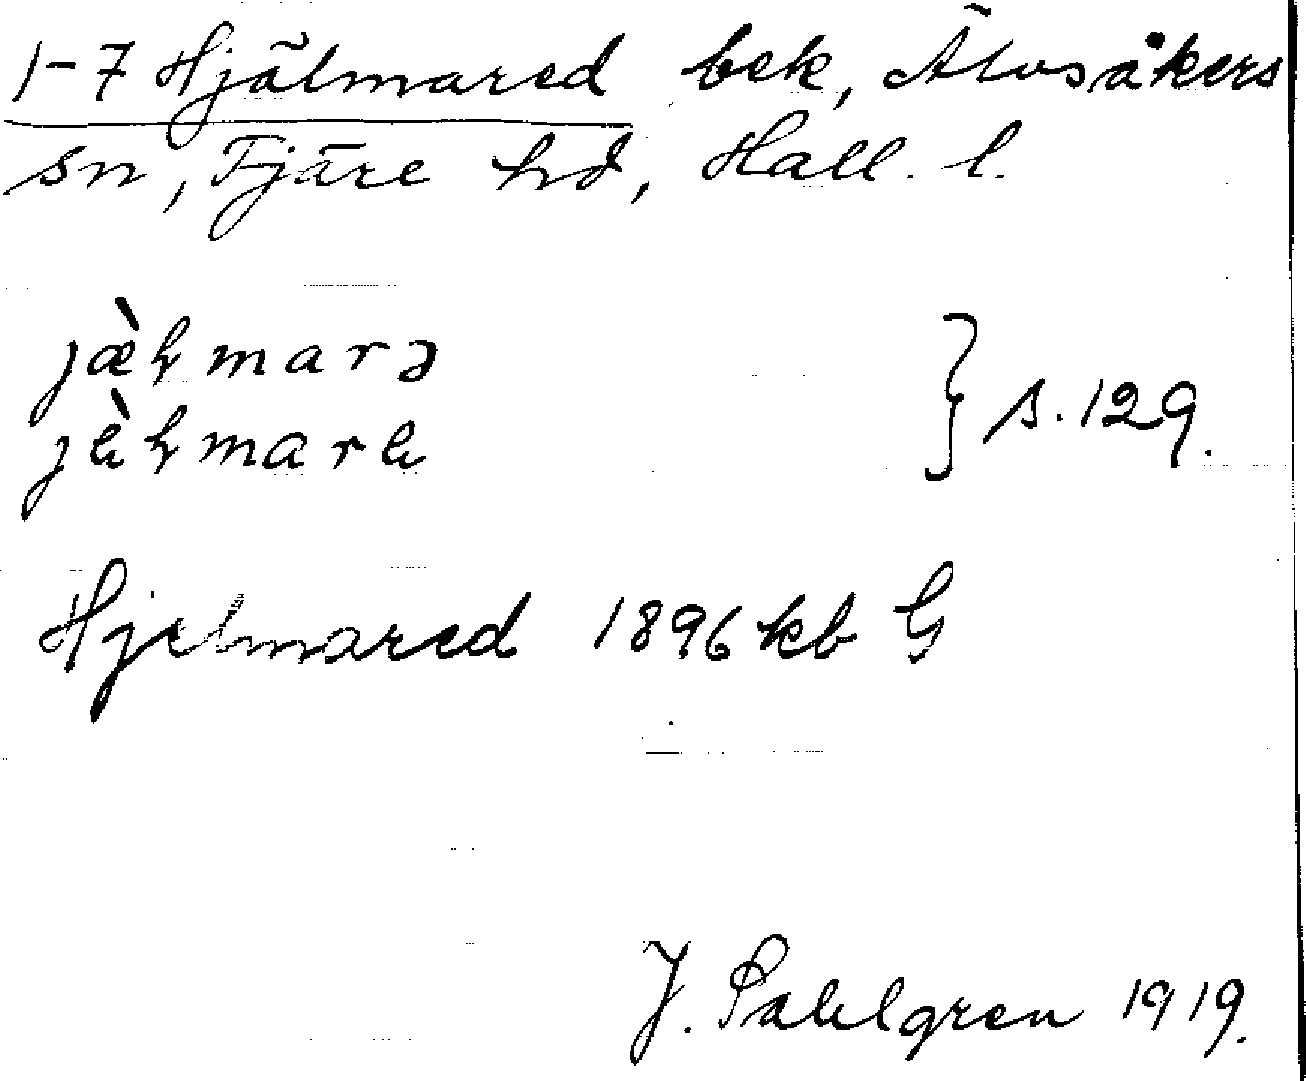 1-7 Hjälmared bek, Älvsåkers
sn, Fjäre hd, Hall. l.
jæ̀ɫmarə
} s. 129.
Hjelmared 1896 kb G
J. Sahlgren 1919.